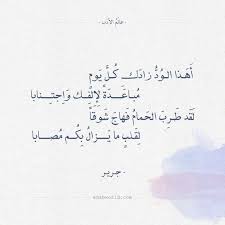 - عالم الأدب -
أَهَذا الـوُدُّ زادَكِ كُـلَّ يَومٍ
مُبـاعَدَةً لِإِلفِـكِ وَاِجتِنابا
لَقَد طَـرِبَ الحَمامُ فَهاجَ شَوقاً
لِقَلبٍ ما يَـزالُ بِكُـم مُصابا
- جرير -
arabworld.com